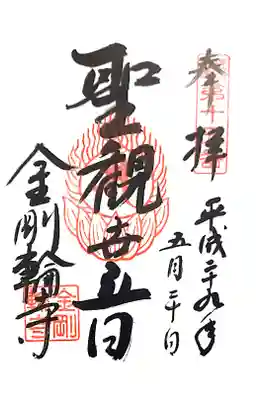 奉拝
平成二十九年
五月二十日
聖観世音
金剛輪寺